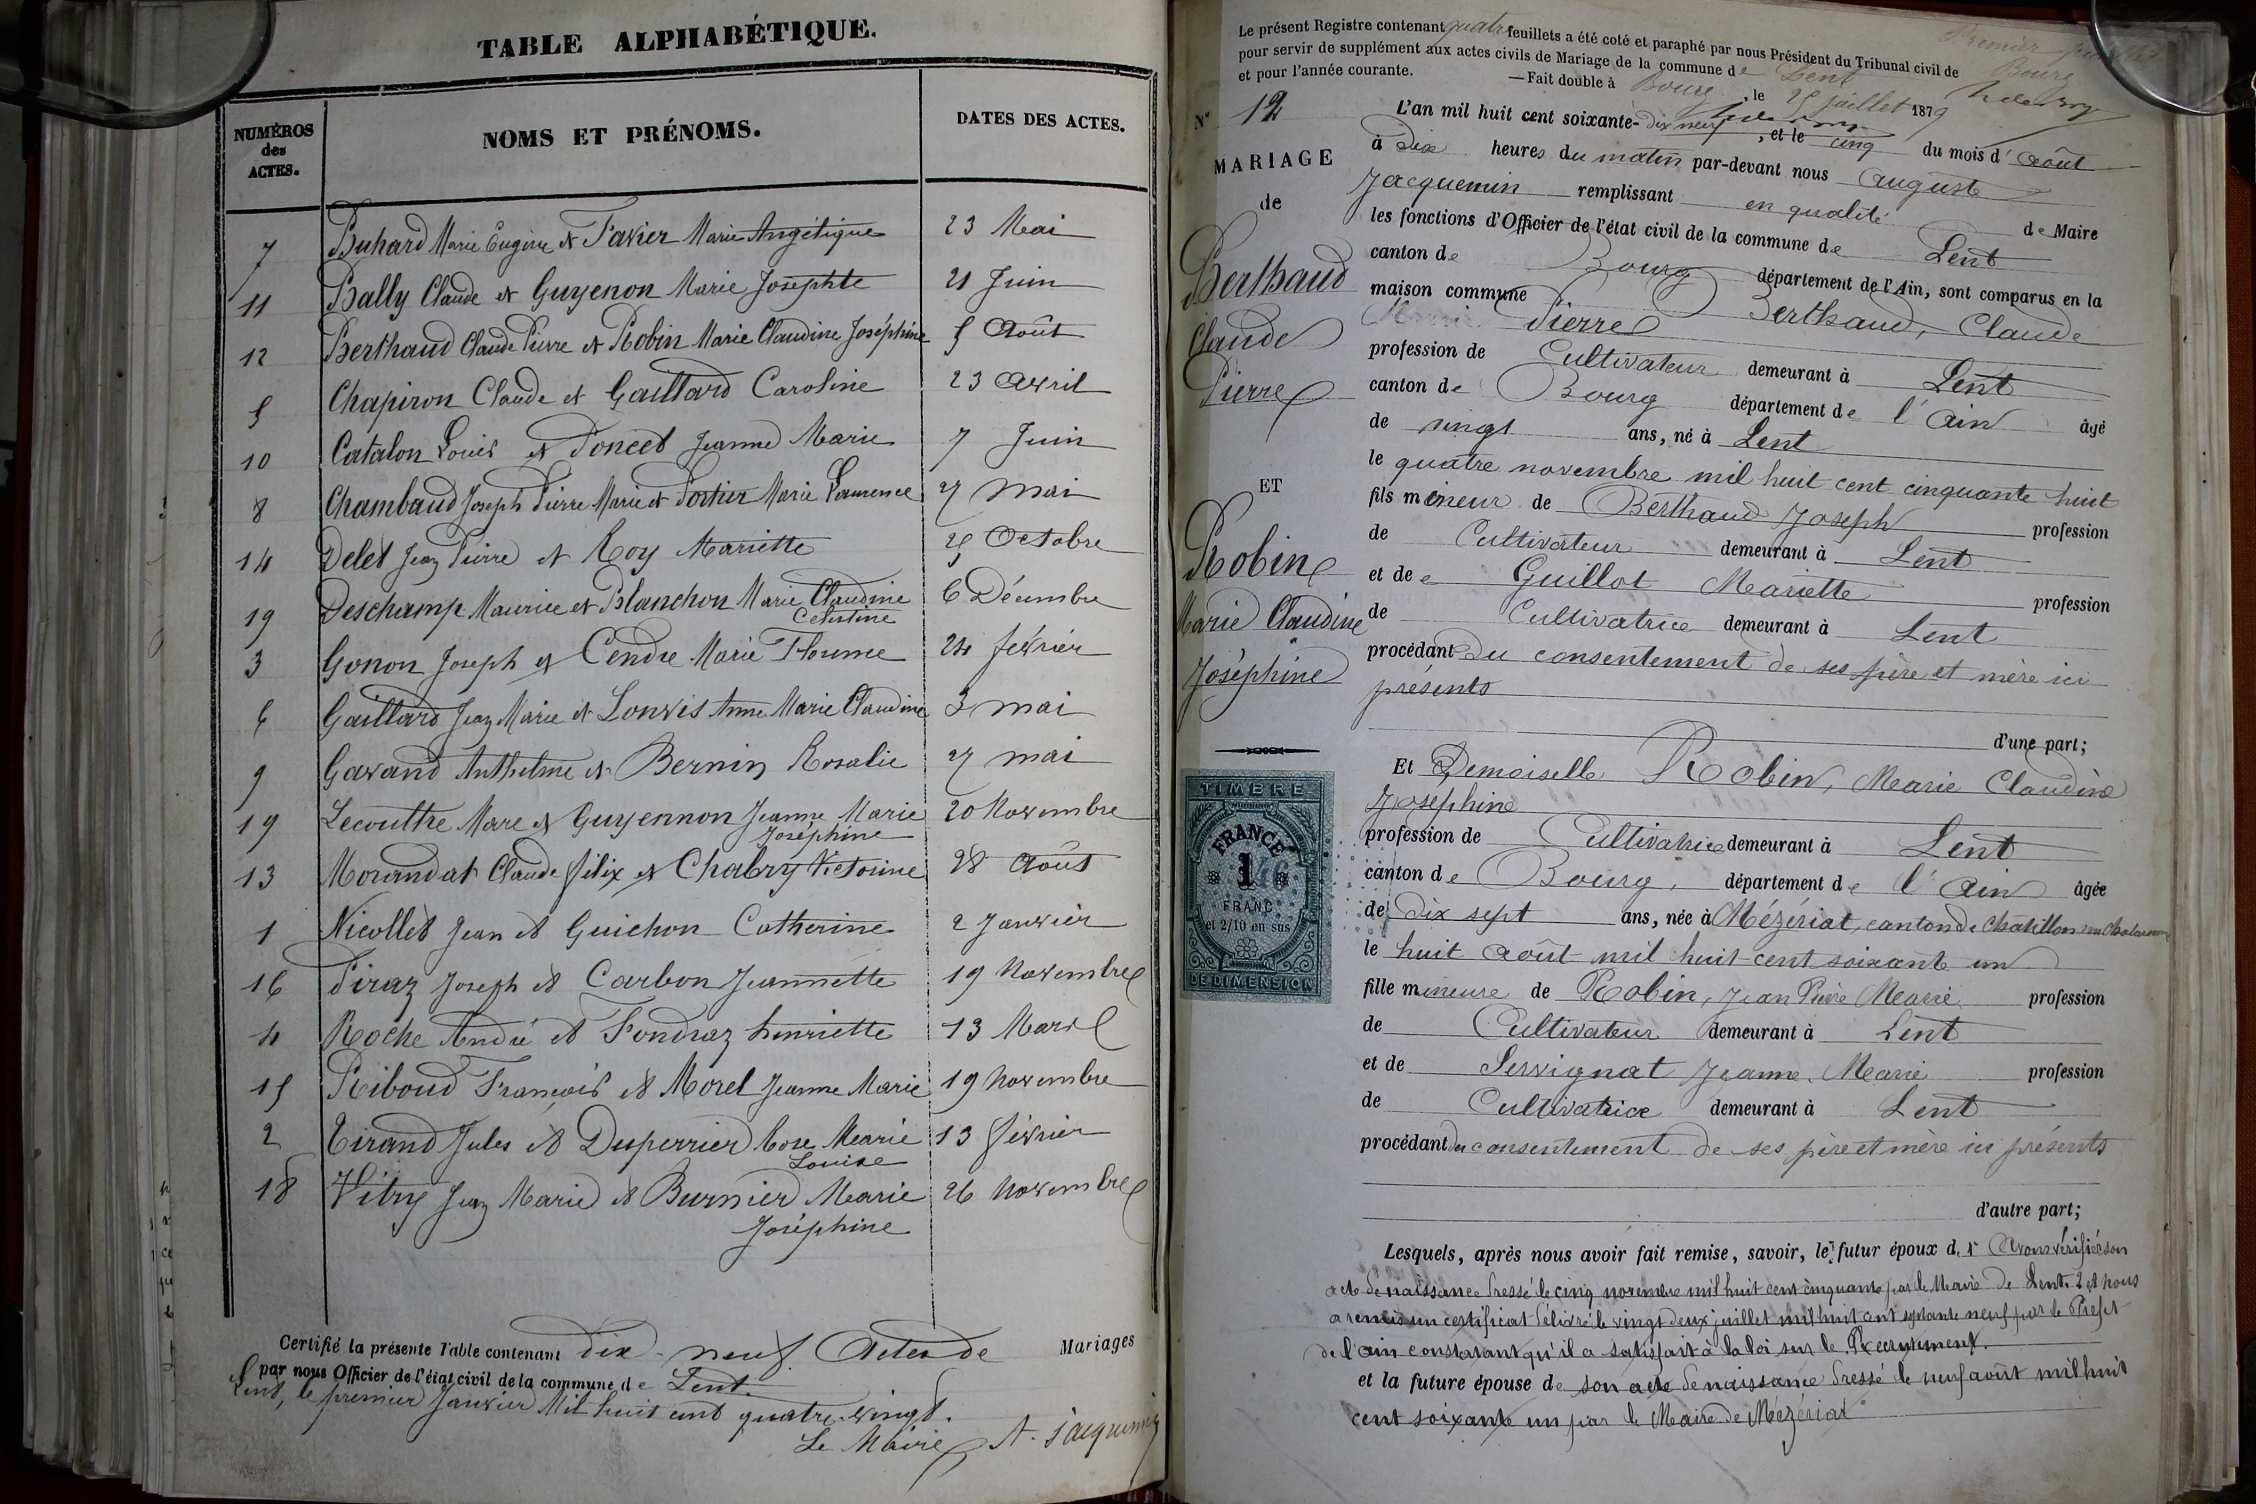 TABLE ALPHABÉTIQUE.
NUMÉROS des ACTES.
NOMS ET PRÉNOMS.
DATES DES ACTES.
7 Buhard Marie Eugène et Favier Marie Angélique 23 Mai
11 Bally Claude et Guyenon Marie Josephte 21 Juin
12 Berthaud Claude Pierre et Robin Marie Claudine Joséphine 5 Août
5 Chapiron Claude et Gaillard Caroline 23 Avril
10 Catalon Louis et Poncet Jeanne Marie 7 Juin
8 Chambaud Joseph Pierre Marie et Portier Marie Laurence 27 Mai
14 Delet Jean Pierre et Roy Mariette 25 Octobre
19 Deschamp Maurice et Blanchon Marie Claudine 6 Décembre
Celestine
3 Gonon Joseph et Cendre Marie 24 février
6 Gaillard Jean Marie et Lonvis Anne Marie Claudine 3 mai
9 Gavand Anthelme et Bernin Rosalie 27 mai
19 Lecouthre Marc et Guyennon Jeanne Marie 20 Novembre
Joséphine
13 Morandat Claude félix et Chabry Victorine 28 Août
1 Nicollet Jean et Guichon Catherine 2 Janvier
16 Piraz Joseph et Carbon Jeannette 19 Novembre
4 Roche André et Fondraz henriette 13 Mars
15 Riboud François et Morel Jeanne Marie 19 Novembre
2 Tirand Jules et Duperrier Rose Marie 13 février
Louise
18 Vitry Jean Marie et Burnier Marie 26 Novembre
Joséphine
Certifié la présente Table contenant dix-neuf Actes de Mariages
par nous Officier de l'état civil de la commune de Lent.
Lent, le premier Janvier Mil huit cent quatre-vingt.
Le Maire A. Jacquemin
Le présent Registre contenant quatre feuillets a été coté et paraphé par nous Président du Tribunal civil de Bourg
pour servir de supplément aux actes civils de Mariage de la commune de Lent
et pour l'année courante. — Fait double à Bourg, le 25 juillet 1879
Premier
N° 12
MARIAGE
de
Berthaud
Claude
Pierre
ET
Robin
Marie Claudine
Joséphine
TIMBRE
FRANCE
1
FRANC
et 2/10 en sus
DE DIMENSION
L'an mil huit cent soixante-dix neuf, et le cinq du mois d'août
à dix heures du matin par-devant nous Auguste
Jacquemin remplissant en qualité de Maire
les fonctions d'Officier de l'état civil de la commune de Lent
canton de Bourg département de l'Ain, sont comparus en la
maison commune Berthaud, Claude
Pierre
profession de Cultivateur demeurant à Lent
canton de Bourg département de l'Ain âgé
de vingt ans, né à Lent
le quatre novembre mil huit cent cinquante huit
fils mineur de Berthaud Joseph profession
de Cultivateur demeurant à Lent
et de Guillot Mariette profession
de Cultivatrice demeurant à Lent
procédant du consentement de ses père et mère ici
présents
d'une part;
Et Demoiselle Robin, Marie Claudine
Joséphine
profession de Cultivatrice demeurant à Lent
canton de Bourg, département de l'Ain âgée
de dix sept ans, née à Mézériat, canton de Châtillon sur Chalaronne
le huit août mil huit cent soixante un
fille mineure de Robin, Jean Pierre Marie profession
de Cultivateur demeurant à Lent
et de Servignat Jeanne Marie profession
de Cultivatrice demeurant à Lent
procédant du consentement de ses père et mère ici présents
d'autre part;
Lesquels, après nous avoir fait remise, savoir, le futur époux d. 1° Avons vérifié son
acte de naissance dressé le cinq novembre mil huit cent cinquante par le Maire de Lent. 2° et nous
a remis un certificat délivré le vingt deux juillet mil huit cent septante neuf par le Préfet
de l'ain constatant qu'il a satisfait à la loi sur le Recrutement.
et la future épouse de son acte de naissance dressé le neuf août mil huit
cent soixante un par le Maire de Mézériat